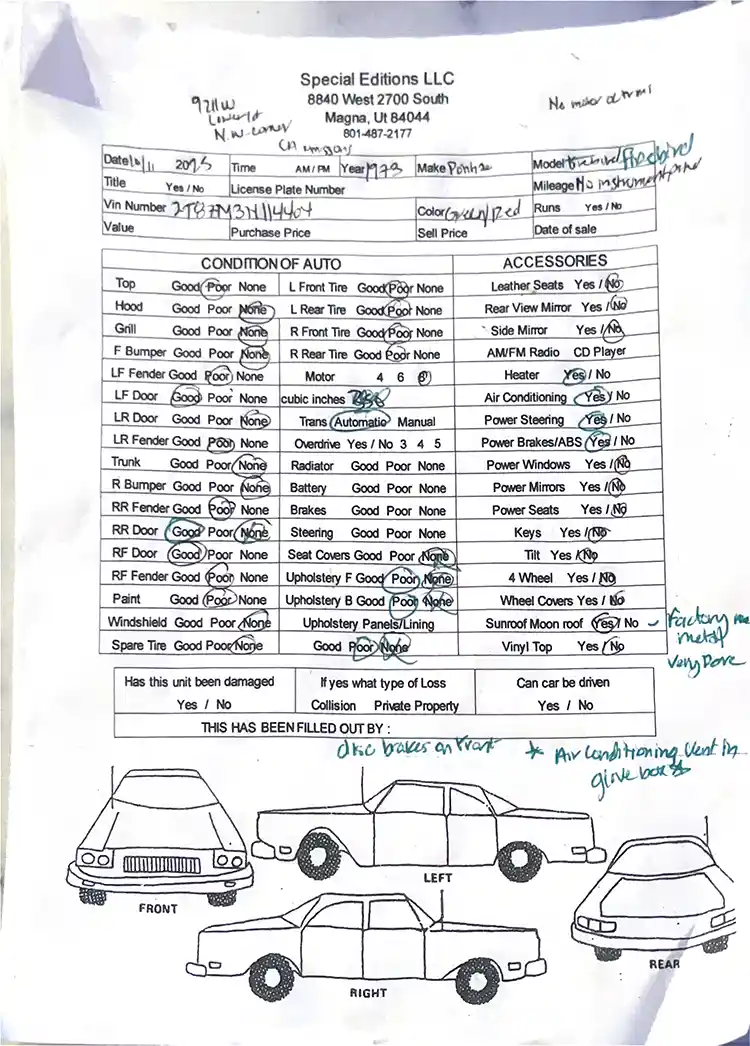 Special Editions LLC
8840 West 2700 South
Magna, Ut 84044
801-487-2177
9211 W
N.W. Corner
No motor or trans
Date 10/11 2025 Time AM / PM Year 1973 Make Model Firebird
Title Yes / No License Plate Number Mileage No instrument
Vin Number Color Green/Red Runs Yes / No
Value Purchase Price Sell Price Date of sale
CONDITION OF AUTO ACCESSORIES
Top Good Poor None L Front Tire Good Poor None Leather Seats Yes / No
Hood Good Poor None L Rear Tire Good Poor None Rear View Mirror Yes / No
Grill Good Poor None R Front Tire Good Poor None Side Mirror Yes / No
F Bumper Good Poor None R Rear Tire Good Poor None AM/FM Radio CD Player
LF Fender Good Poor None Motor 4 6 8 Heater Yes / No
LF Door Good Poor None cubic inches Air Conditioning Yes / No
LR Door Good Poor None Trans Automatic Manual Power Steering Yes / No
LR Fender Good Poor None Overdrive Yes / No 3 4 5 Power Brakes/ABS Yes / No
Trunk Good Poor None Radiator Good Poor None Power Windows Yes / No
R Bumper Good Poor None Battery Good Poor None Power Mirrors Yes / No
RR Fender Good Poor None Brakes Good Poor None Power Seats Yes / No
RR Door Good Poor None Steering Good Poor None Keys Yes / No
RF Door Good Poor None Seat Covers Good Poor None Tilt Yes / No
RF Fender Good Poor None Upholstery F Good Poor None 4 Wheel Yes / No
Paint Good Poor None Upholstery B Good Poor None Wheel Covers Yes / No
Windshield Good Poor None Upholstery Panels/Lining Sunroof Moon roof Yes / No - Factory
metal
Spare Tire Good Poor None Good Poor None Vinyl Top Yes / No
Very Rare
Has this unit been damaged If yes what type of Loss Can car be driven
Yes / No Collision Private Property Yes / No
THIS HAS BEEN FILLED OUT BY :
disc brakes on front * Air Conditioning Vent in
glove box
LEFT
FRONT
REAR
RIGHT